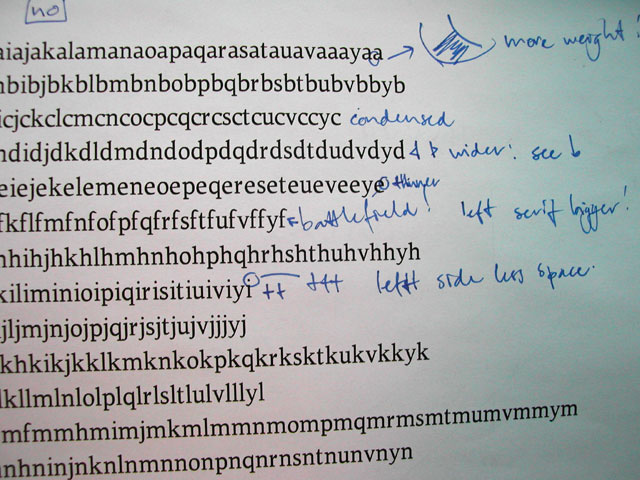 no
aiajakalamanaoapaqarasatauavaaayaa more weight!
nbibjbkblbmbnbobpbqbrbsbtbubvbbyb
icjckclcmcncocpcqcrcsctcucvccyc condensed
ndidjdkdldmdndodpdqdrdsdtdudvdyd wider: see b
eiejekelemeneoepeqereseteueveeye thinner
fkflfmfnfofpfqfrfsftfufvffyf battlefield! left serif bigger!
hihjhkhlhmhnhohphqhrhshthuhvhhyh
kiliminioipiqirisitiuiviyi tt ttt left side less space.
jljmjnjojpjqjrjsjtjujvjjjyj
khkikjkklkmknkokpkqkrksktkukvkkyk
lkllmlnlolplqlrlsltlulvlllyl
mfmmhmimjmkmlmmnmompmqmrmsmtmumvmmym
nhninjnknlnmnnonpnqnrnsntnunvnyn